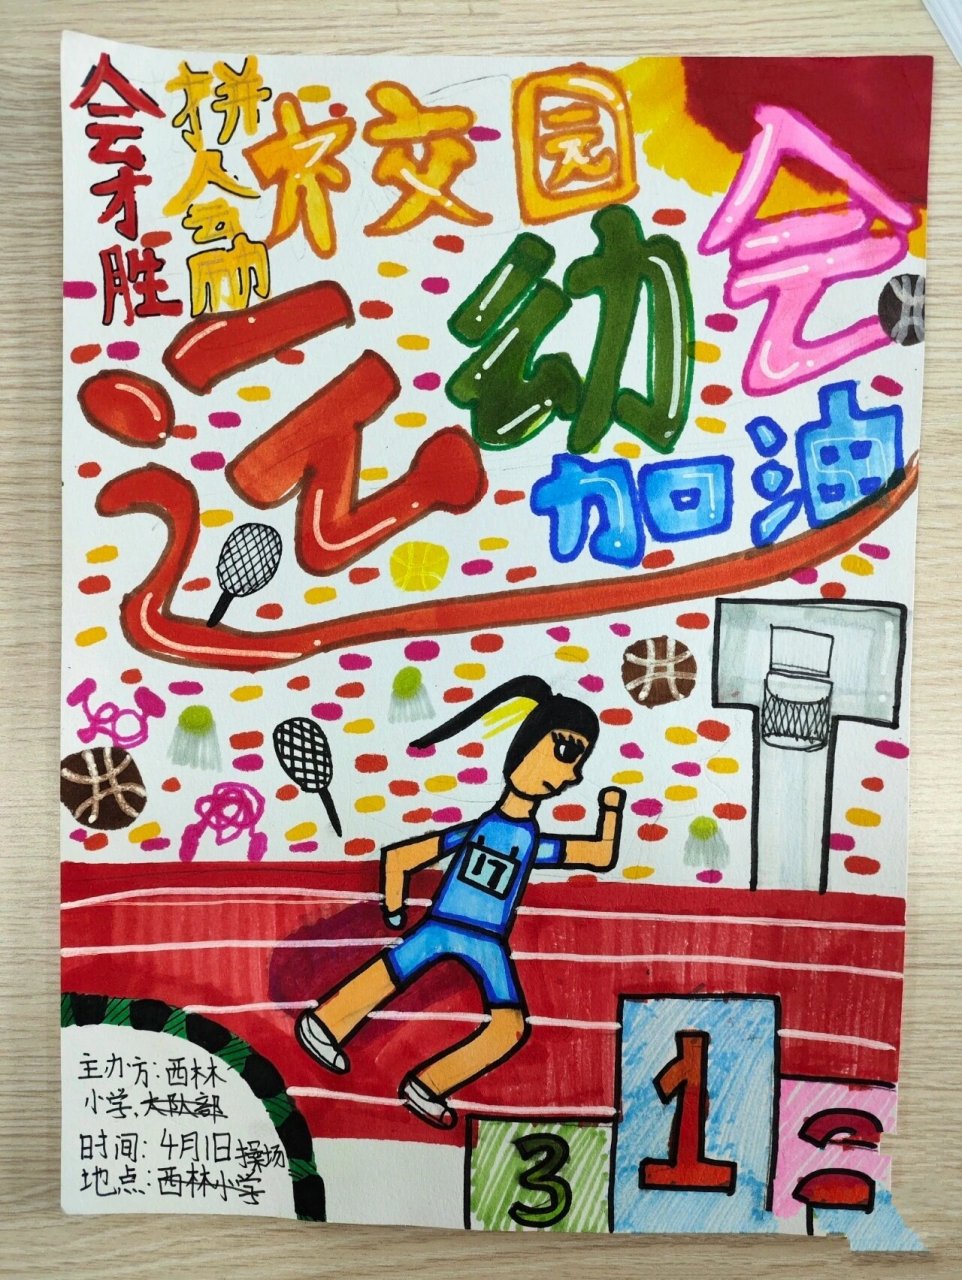 会才胜
拼人
校园
运动会
加油
17
主办方:西林
小学、大队部
时间:4月1日操场
地点:西林小学
3
1
2